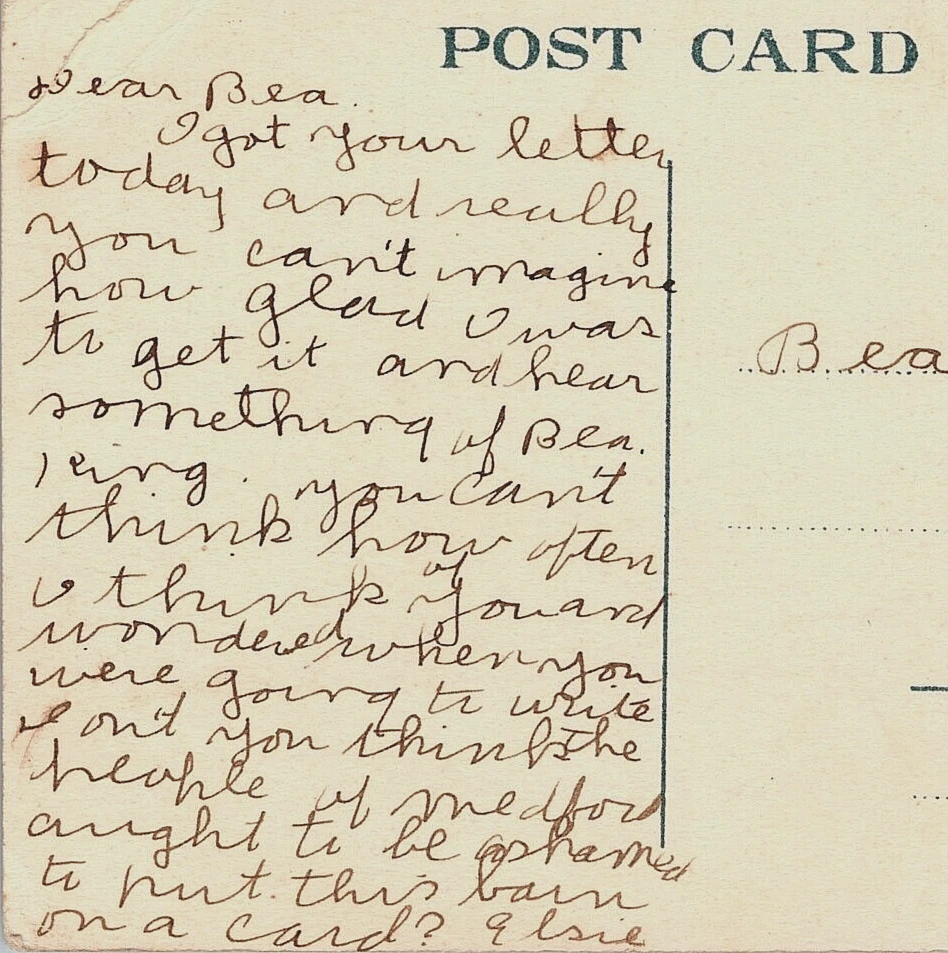 POST CARD
Dear Bea.
I got your letter
today and really
you can't imagine
how glad I was
to get it and hear
something of Bea.
King. you can't
think how often
I think of you and
wondered when you
were going to write
Don't you think the
people of Medford
aught to be ashamed
to put this barn
on a card? Elsie
Bea